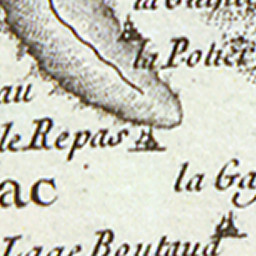 la Potier
au
le Repas
la Ga
ac
Lage Boutaud